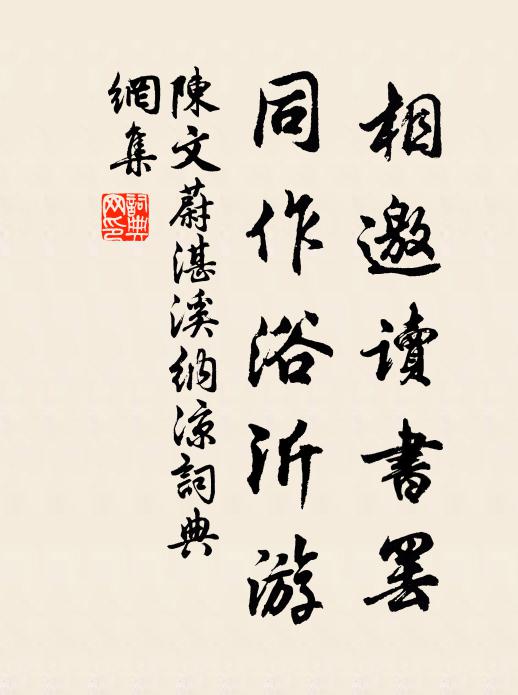 相邀讀書罢
同作浴沂游
陳文蔚湛溪納凉詞典
網集
詞典网印